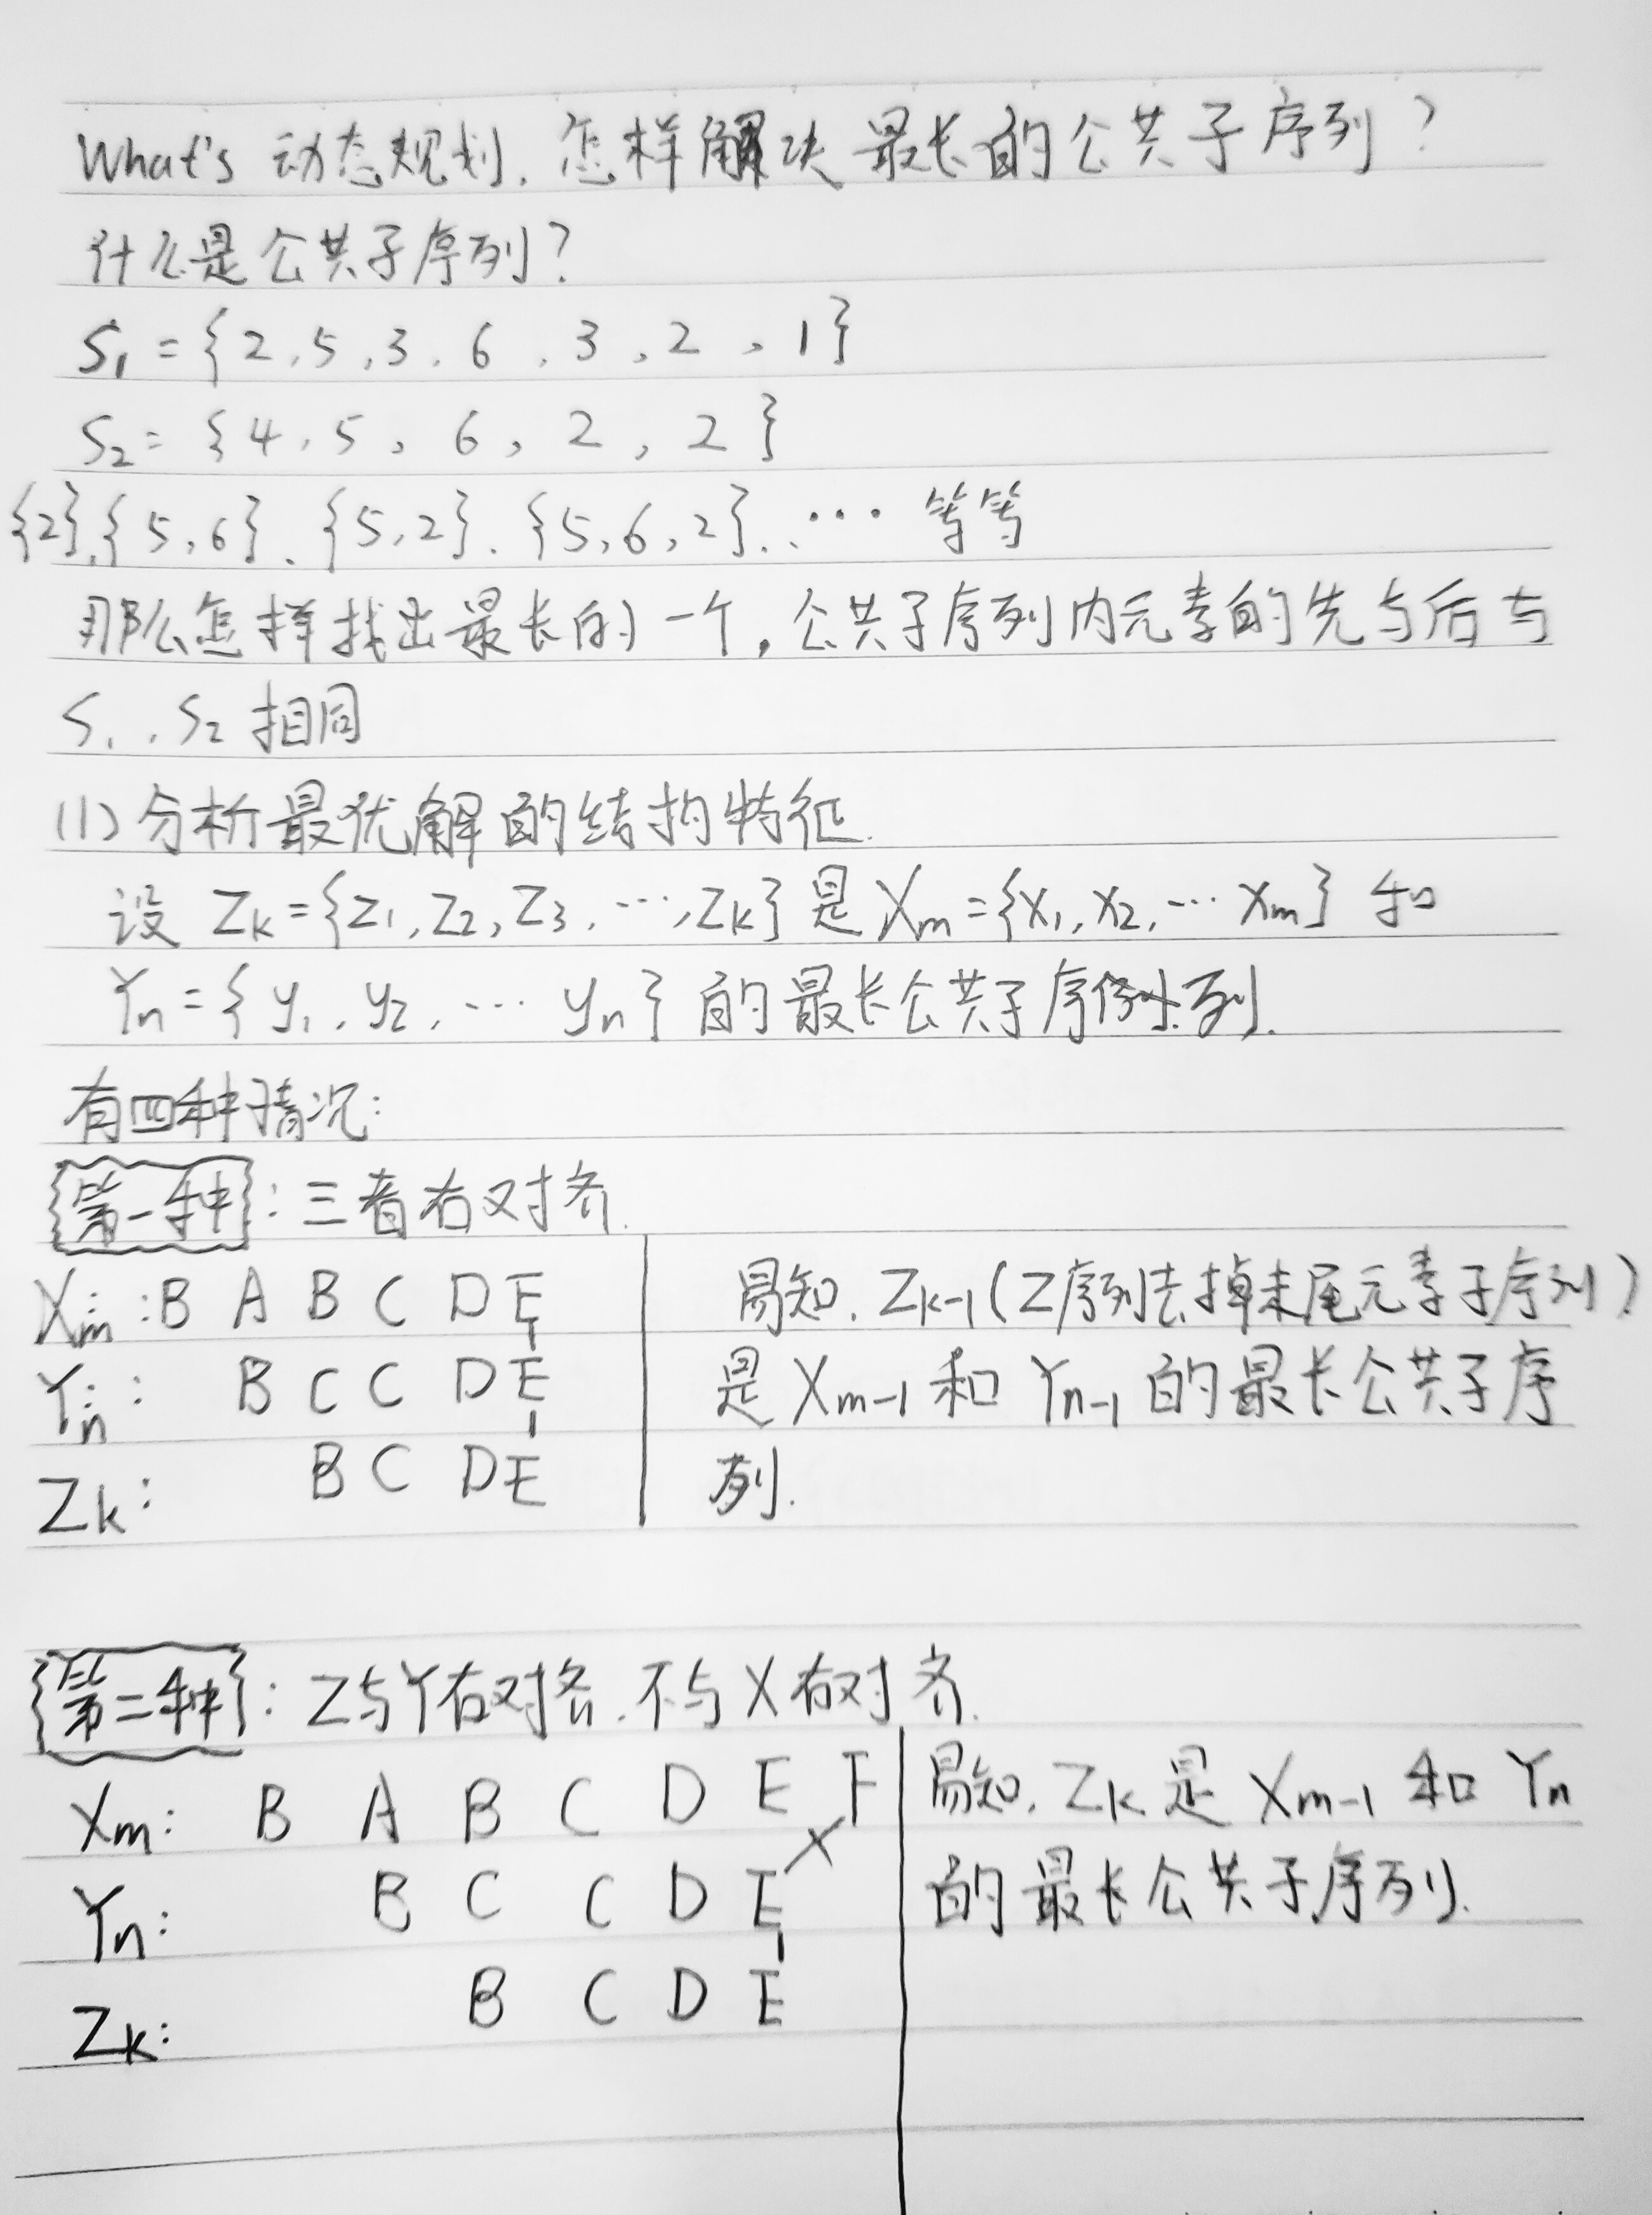 What's 动态规划，怎样解决最长的公共子序列？
什么是公共子序列？
S₁ = {2, 5, 3, 6, 3, 2, 1}
S₂ = {4, 5, 6, 2, 2}
{2}、{5,6}、{5,2}、{5,6,2}、… 等等
那么怎样找出最长的一个，公共子序列内元素的先与后与
S₁、S₂ 相同
(1) 分析最优解的结构特征.
设 Zk = {z₁, z₂, z₃, …, zk} 是 Xm = {x₁, x₂, … xm} 和
Yn = {y₁, y₂, … yn} 的最长公共子序列.
有四种情况：
第一种：三者右对齐.
Xm: B A B C D E
Yn: B C C D E
Zk: B C D E
易知，Zk-1 (Z序列去掉末尾元素子序列)
是 Xm-1 和 Yn-1 的最长公共子序
列.
第二种：Z与Y右对齐，不与X右对齐.
Xm: B A B C D E F
Yn: B C C D E
Zk: B C D E
易知，Zk 是 Xm-1 和 Yn
的最长公共子序列.